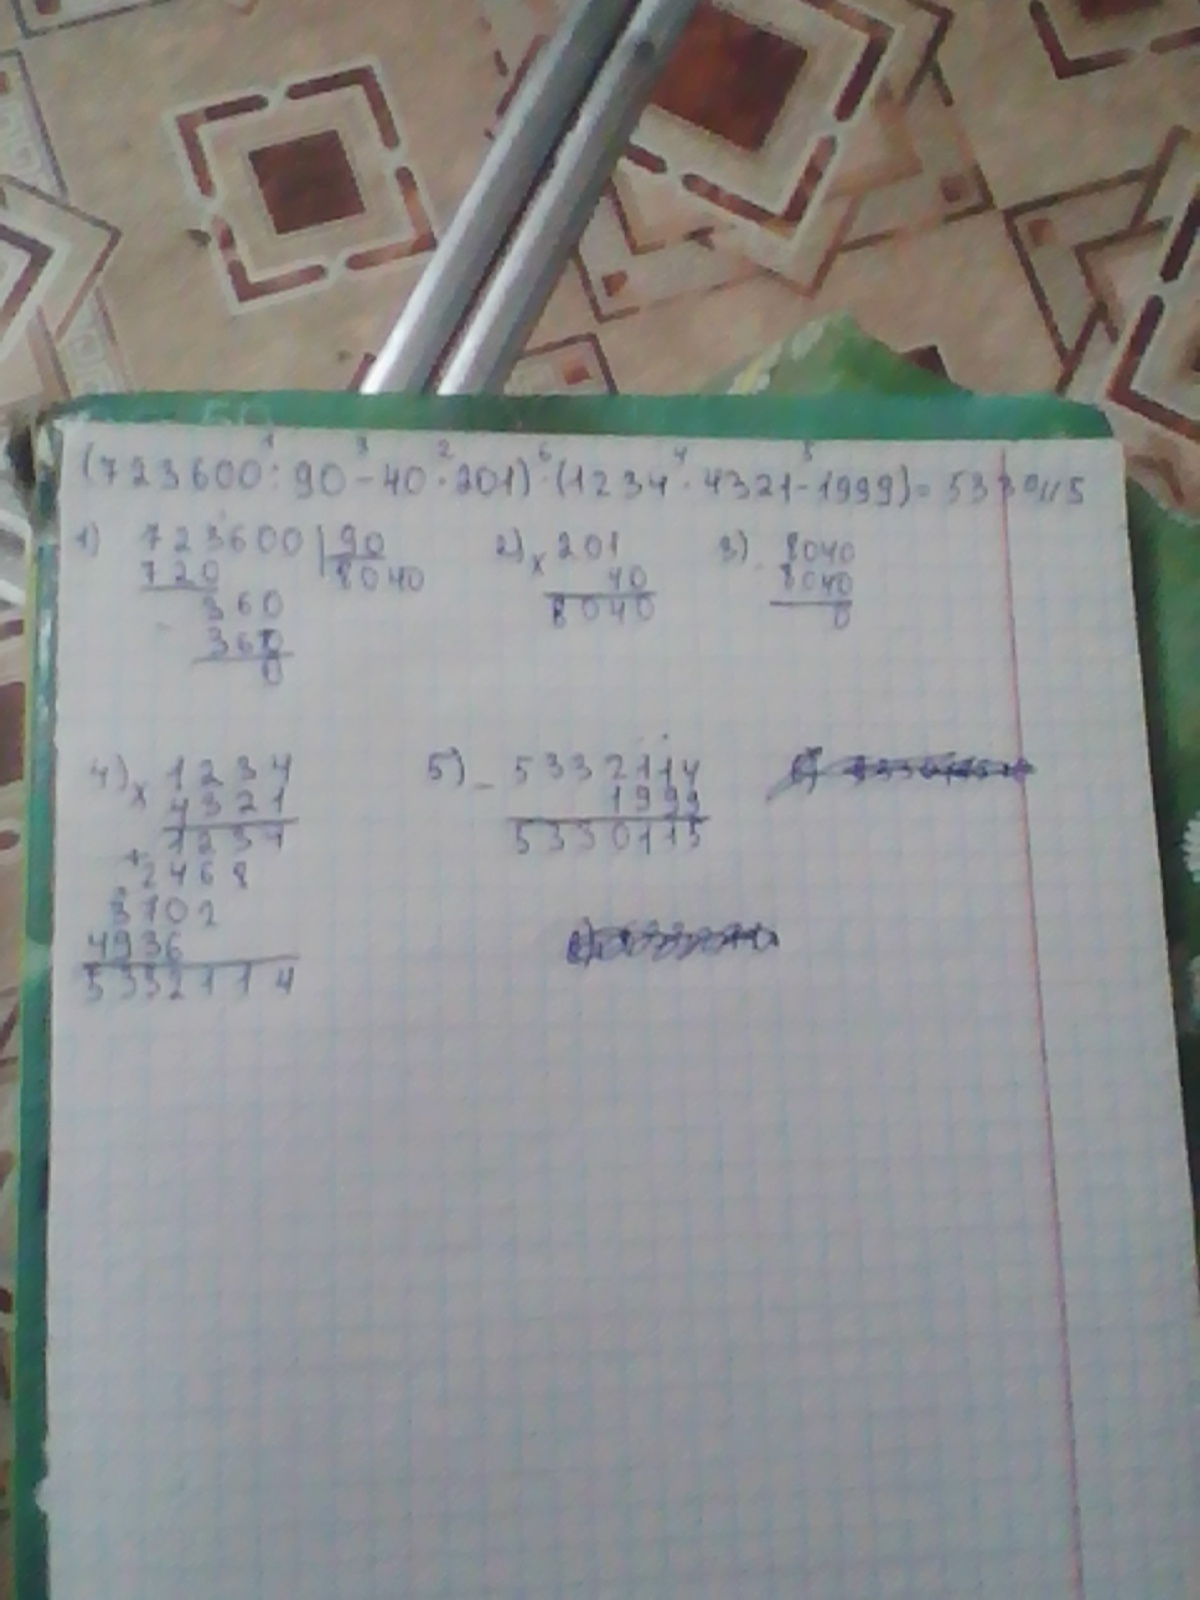 (723600:90-40·201)·(1234·4321-1999)=5330115
1 3 2 6 4 5
1) 723600 | 90
720 8040
360
360
0
2) x 201
40
8040
3) - 8040
8040
0
4) x 1234
4321
1234
+ 2468
3702
4936
5332114
5) - 5332114
1999
5330115